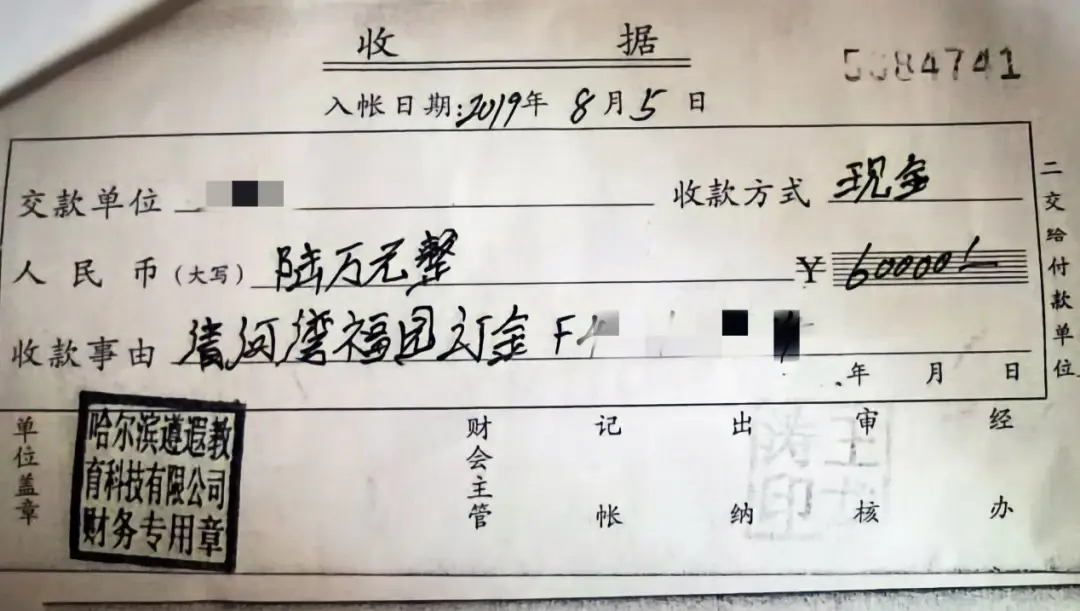 收 据
5084741
入帐日期:2019年 8月5日
交款单位 收款方式 现金
人民币(大写) 陆万元整 ¥ 60000.-
收款事由 清河湾福园订金 F4
年 月 日
二交给付款单位
单位盖章
哈尔滨遵遐教
育科技有限公司
财务专用章
财会主管 记帐 出纳 审核 经办
王
涛
印